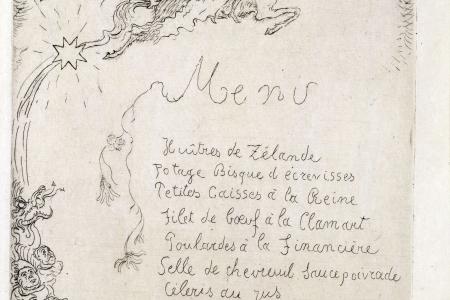 Menu
Huîtres de Zélande
Potage Bisque d'écrevisses
Petites Caisses à la Reine
Filet de bœuf à la Clamart
Poulardes à la Financière
Selle de chevreuil Sauce poivrade
Céleris au jus